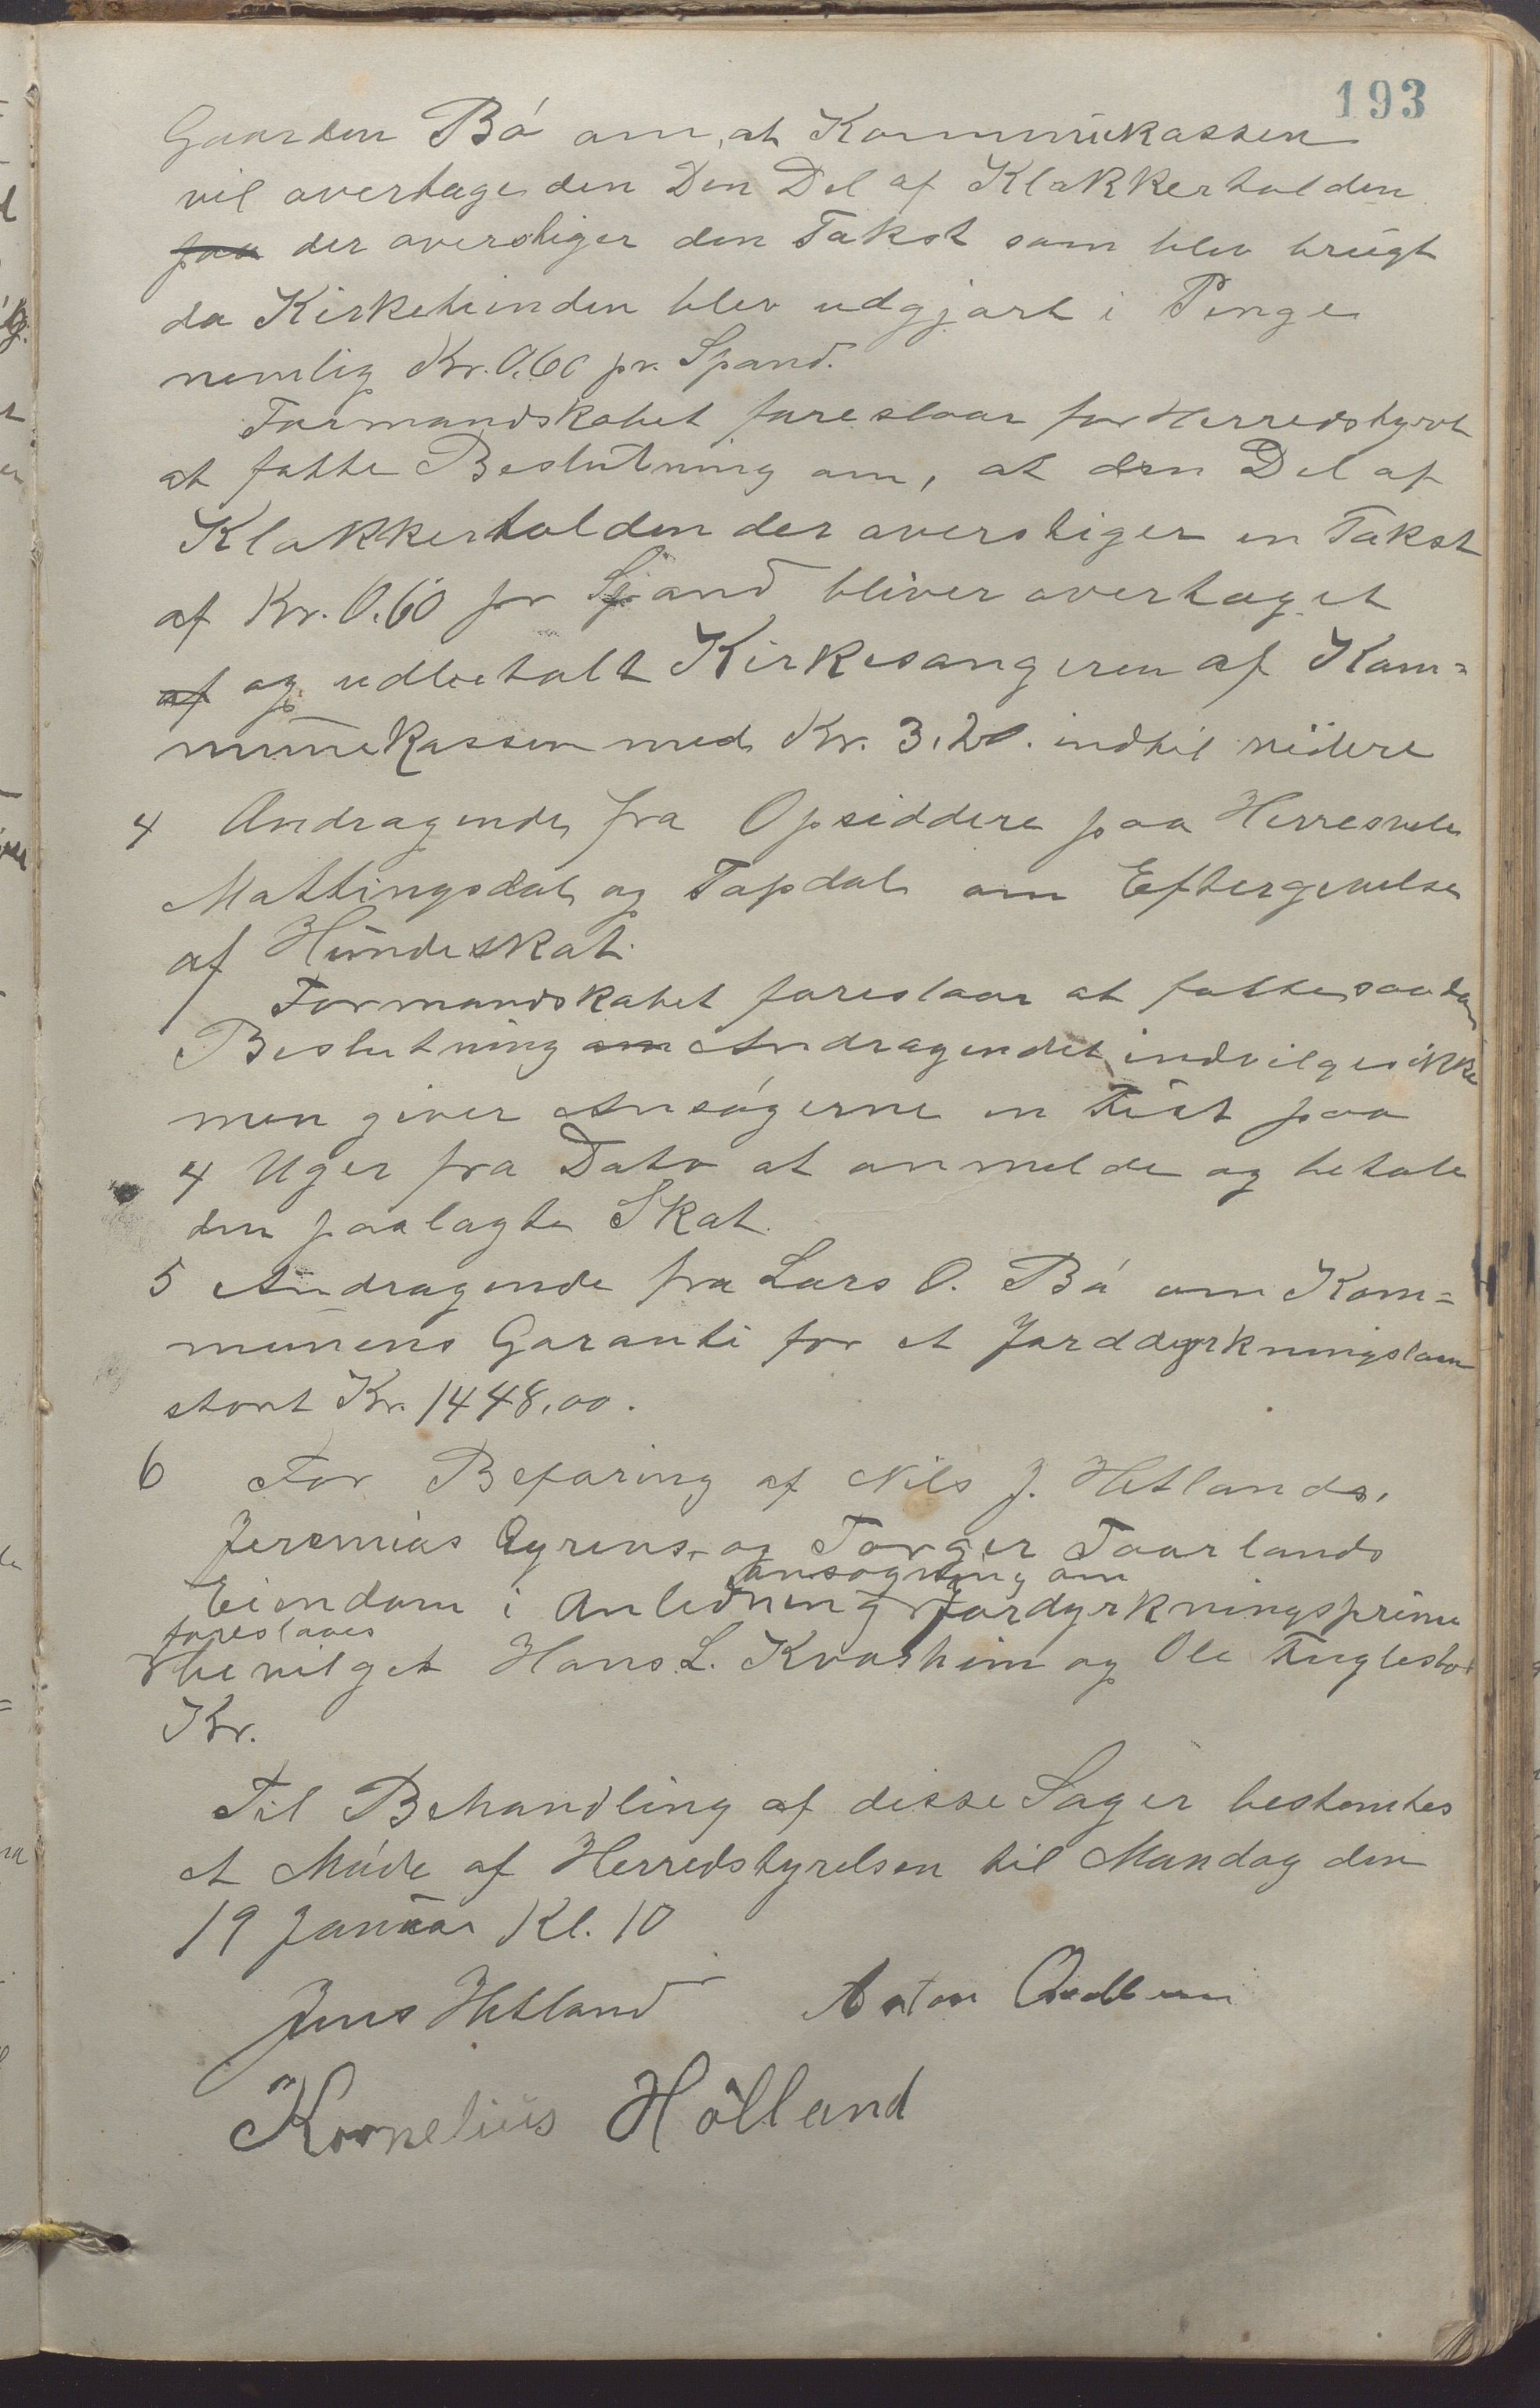 193
Gaarden Bö om, at Kommunekassen
vil overtage den Den Del af Klokkertolden
paa der overstiger den Takst som blev brugt
da Kirketienden blev udgjort i Penge
nemlig Kr. 0.60 pr. Spand.
Formandskabet foreslaar for Herredstyret
at fatte Beslutning om, at den Del af
Klokkertolden der overstiger en Takst
af Kr. 0.60 pr Spand bliver overtaget
af og udbetalt Kirkesangeren af Kom=
munekassen med Kr. 3.20. indtil videre
4 Andragende fra Opsiddere paa Herresvele
Mattingsdal og Tapdal om Eftergivelse
af Hundeskat.
Formandskabet foreslaar at fatte saadan
Beslutning om Andragendet indvilges ikke
men giver Ansögerne en Frist paa
4 Uger fra Dato at anmelde og betale
den paalagte Skat.
5 Andragende fra Lars O. Bö om Kom=
munens Garanti for et Jorddyrkningslaan
stort Kr. 1448,00.
6 For Befaring af Nils J. Hetlands,
Jeremias Qyrens, og Torger Taarlands
ansogning om
Eiendom i Anledning Jordyrkningsprimie
foreslaaes
bevilget Hans L. Kvashim og Ole Fuglestad
Kr.
Til Behandling af disse Sager bestemtes
et Möde af Herredstyrelsen til Mandag den
19 Januar Kl. 10
Jens Hetland Anton
Kornelius Hölland